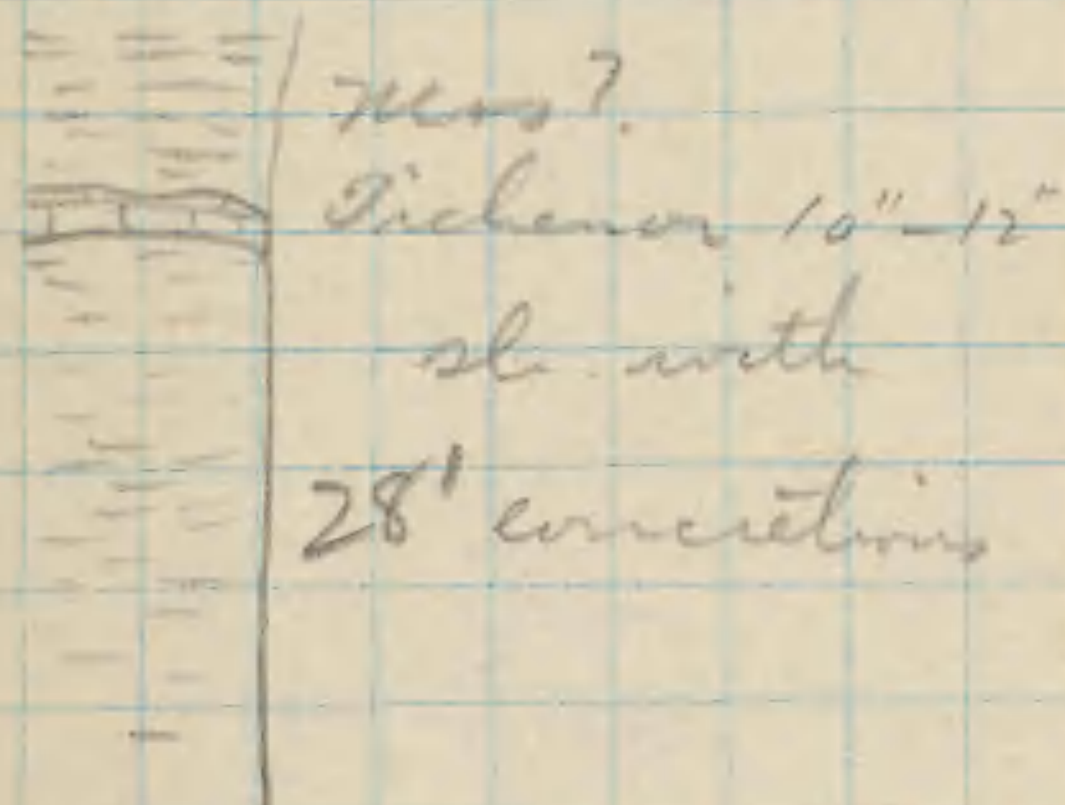 Tichenor 10"-12"
sh. with
28' concretions